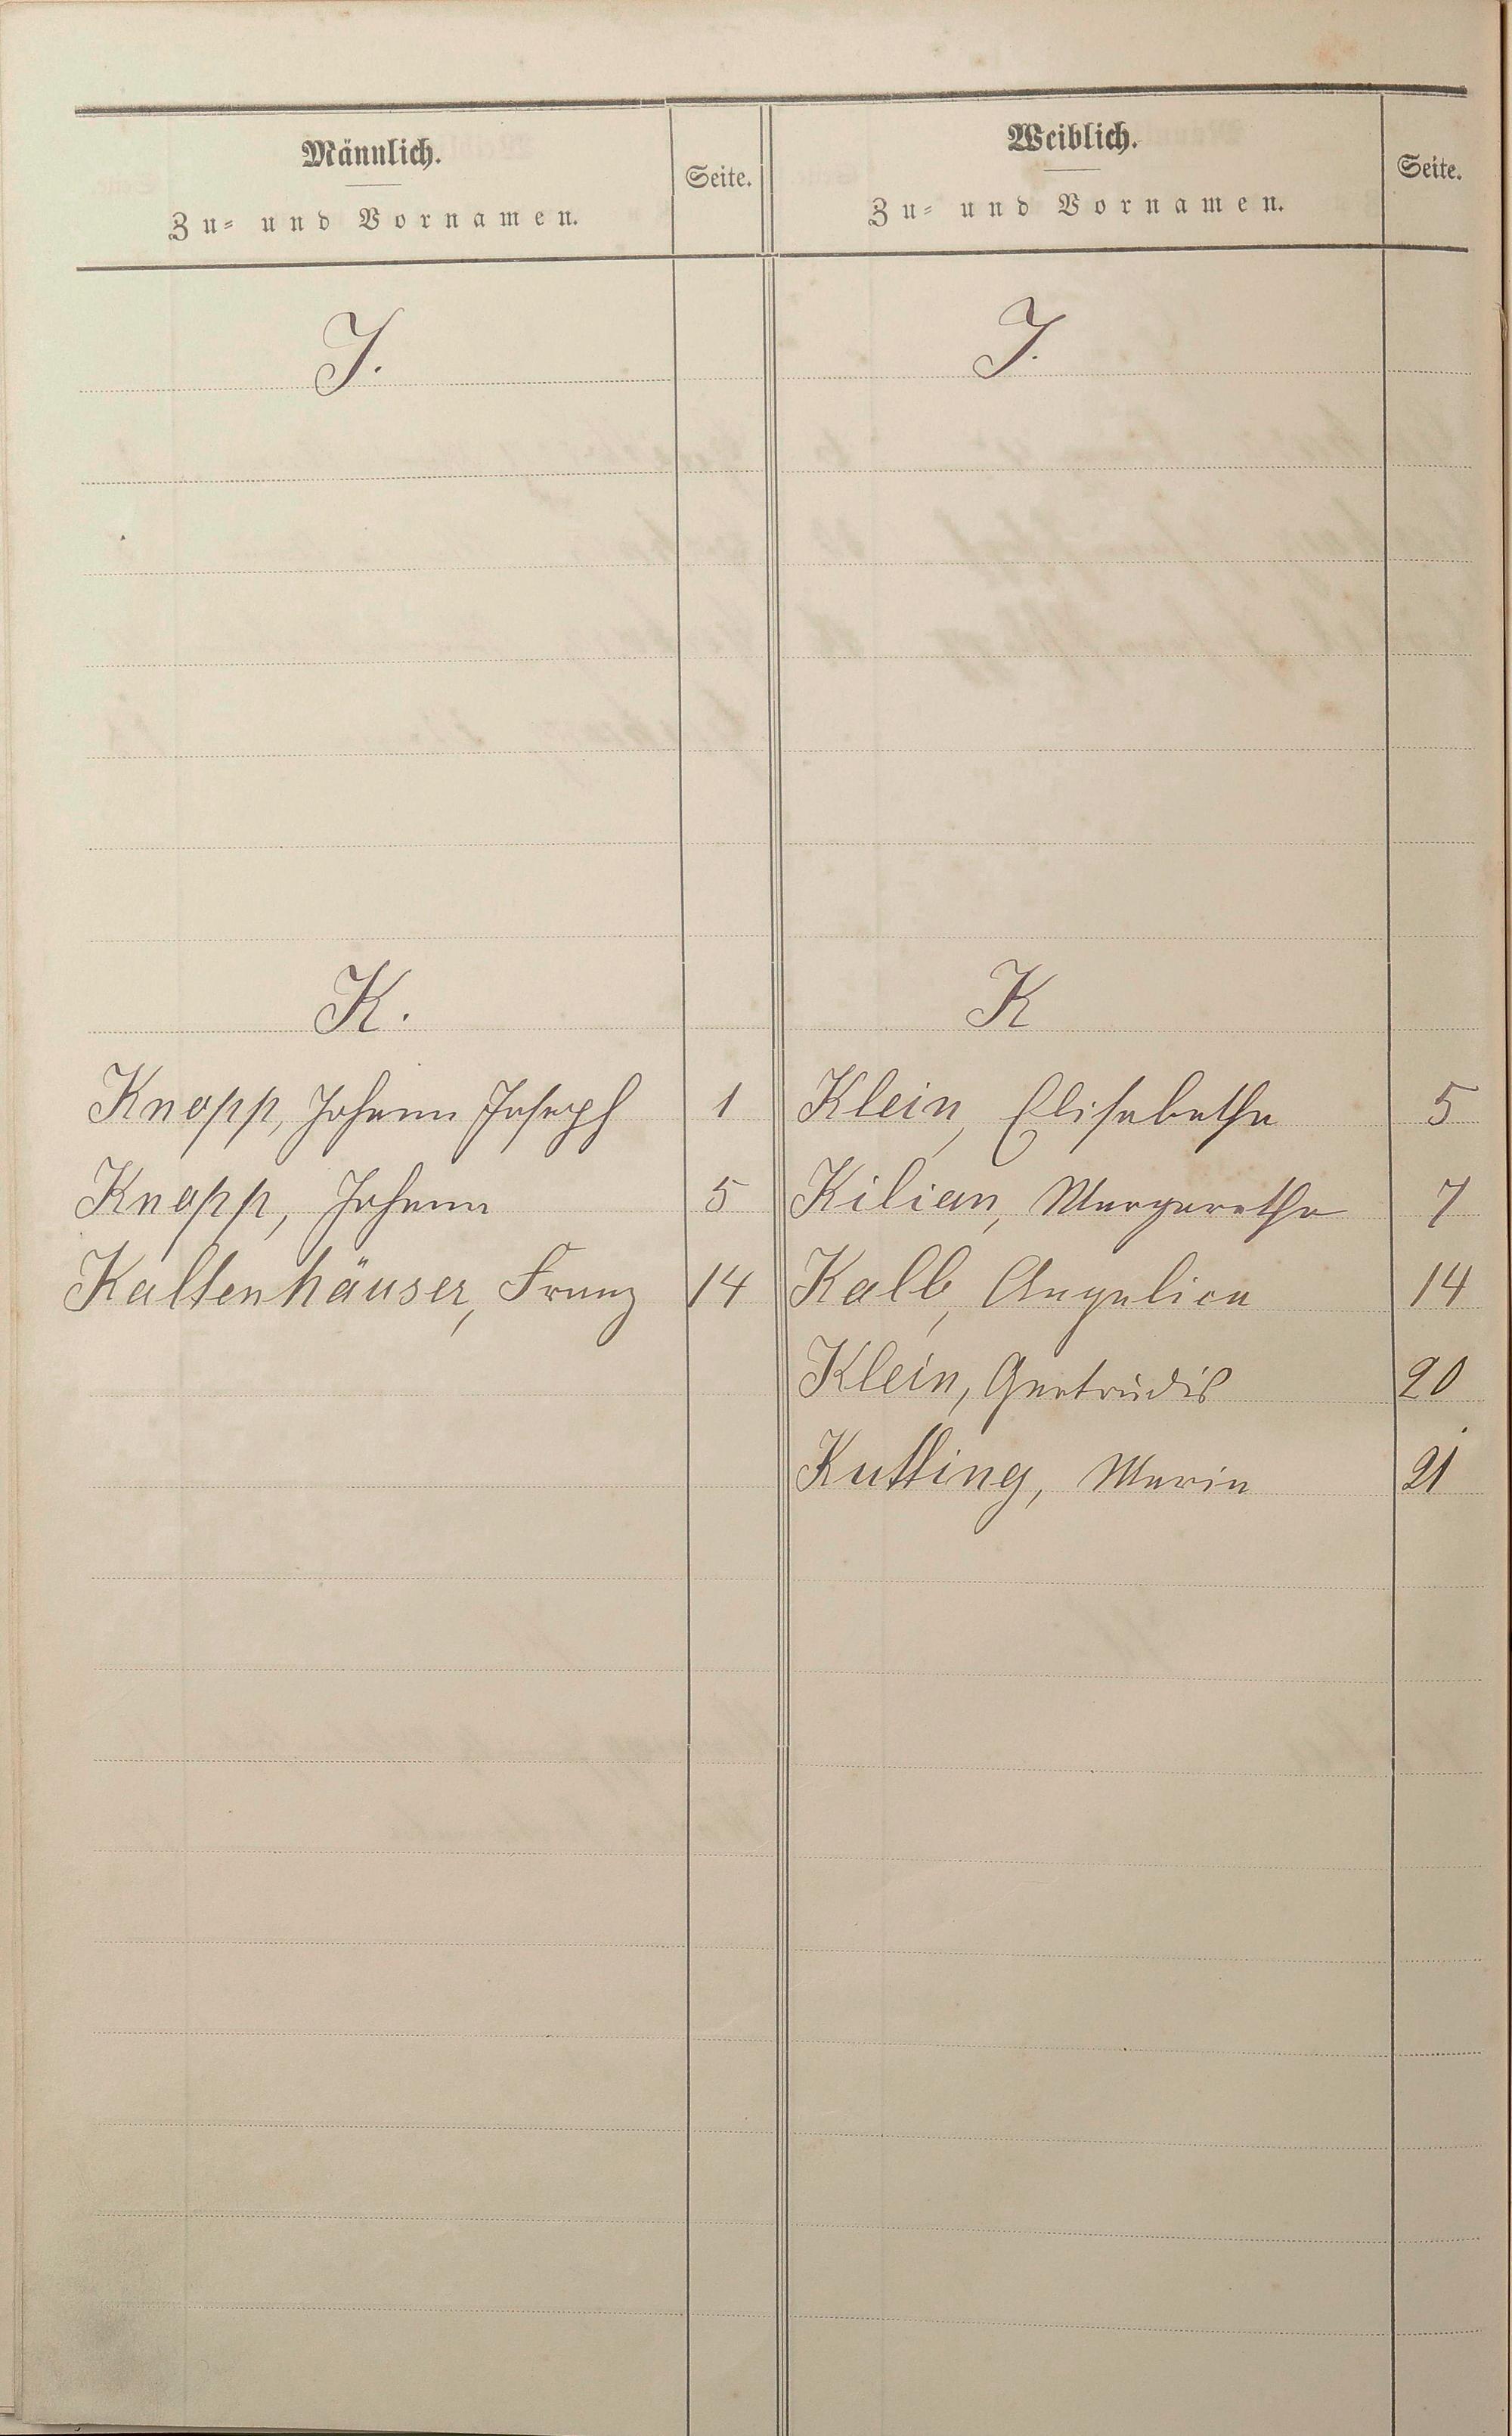 Männlich.
Zu- und Vornamen.
Seite.
Weiblich.
Zu- und Vornamen.
Seite.
J.
J.
K.
K
Knapp, Johann Joseph 1
Klein, Elisabetha 5
Knapp, Johann 5
Kilian, Margaretha 7
Kaltenhäuser, Franz 14
Kalb, Angelica 14
Klein, Gertrudis 20
Kutting, Maria 21